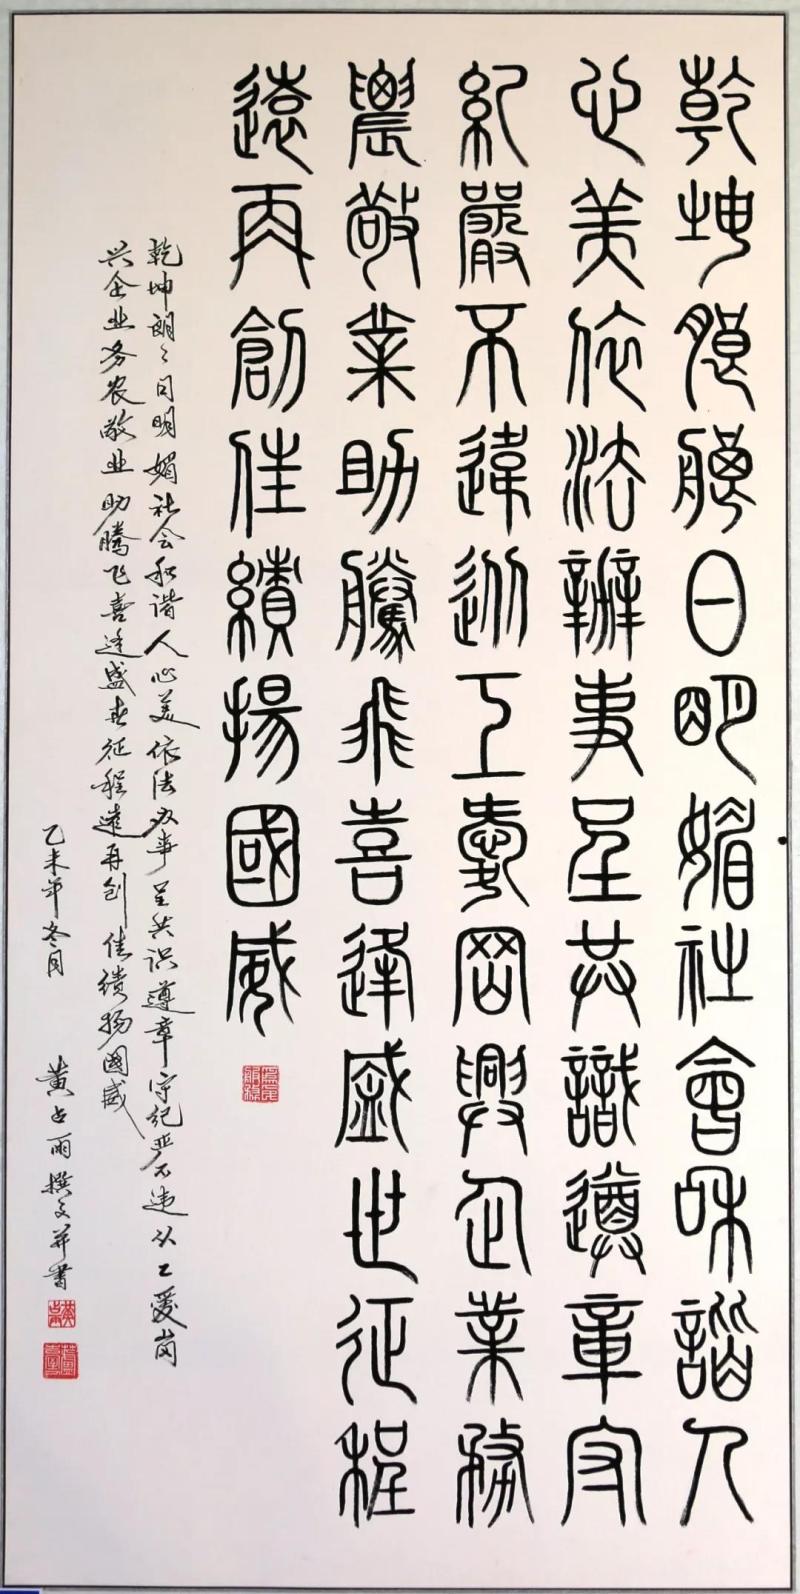 乾坤朗朗日明媚社會和諧人
心美依法辦事呈共識遵章守
紀嚴不違從工愛崗興企業務
農敬業助騰飛喜逢盛世征程
遠再創佳績揚國威
乾坤朗々日明媚社会和谐人心美依法办事呈共识遵章守纪严不违从工愛岗
兴企业务农敬业助腾飞喜逢盛世征程遠再创佳绩扬國威
乙未年冬月 黄占雨撰文并書